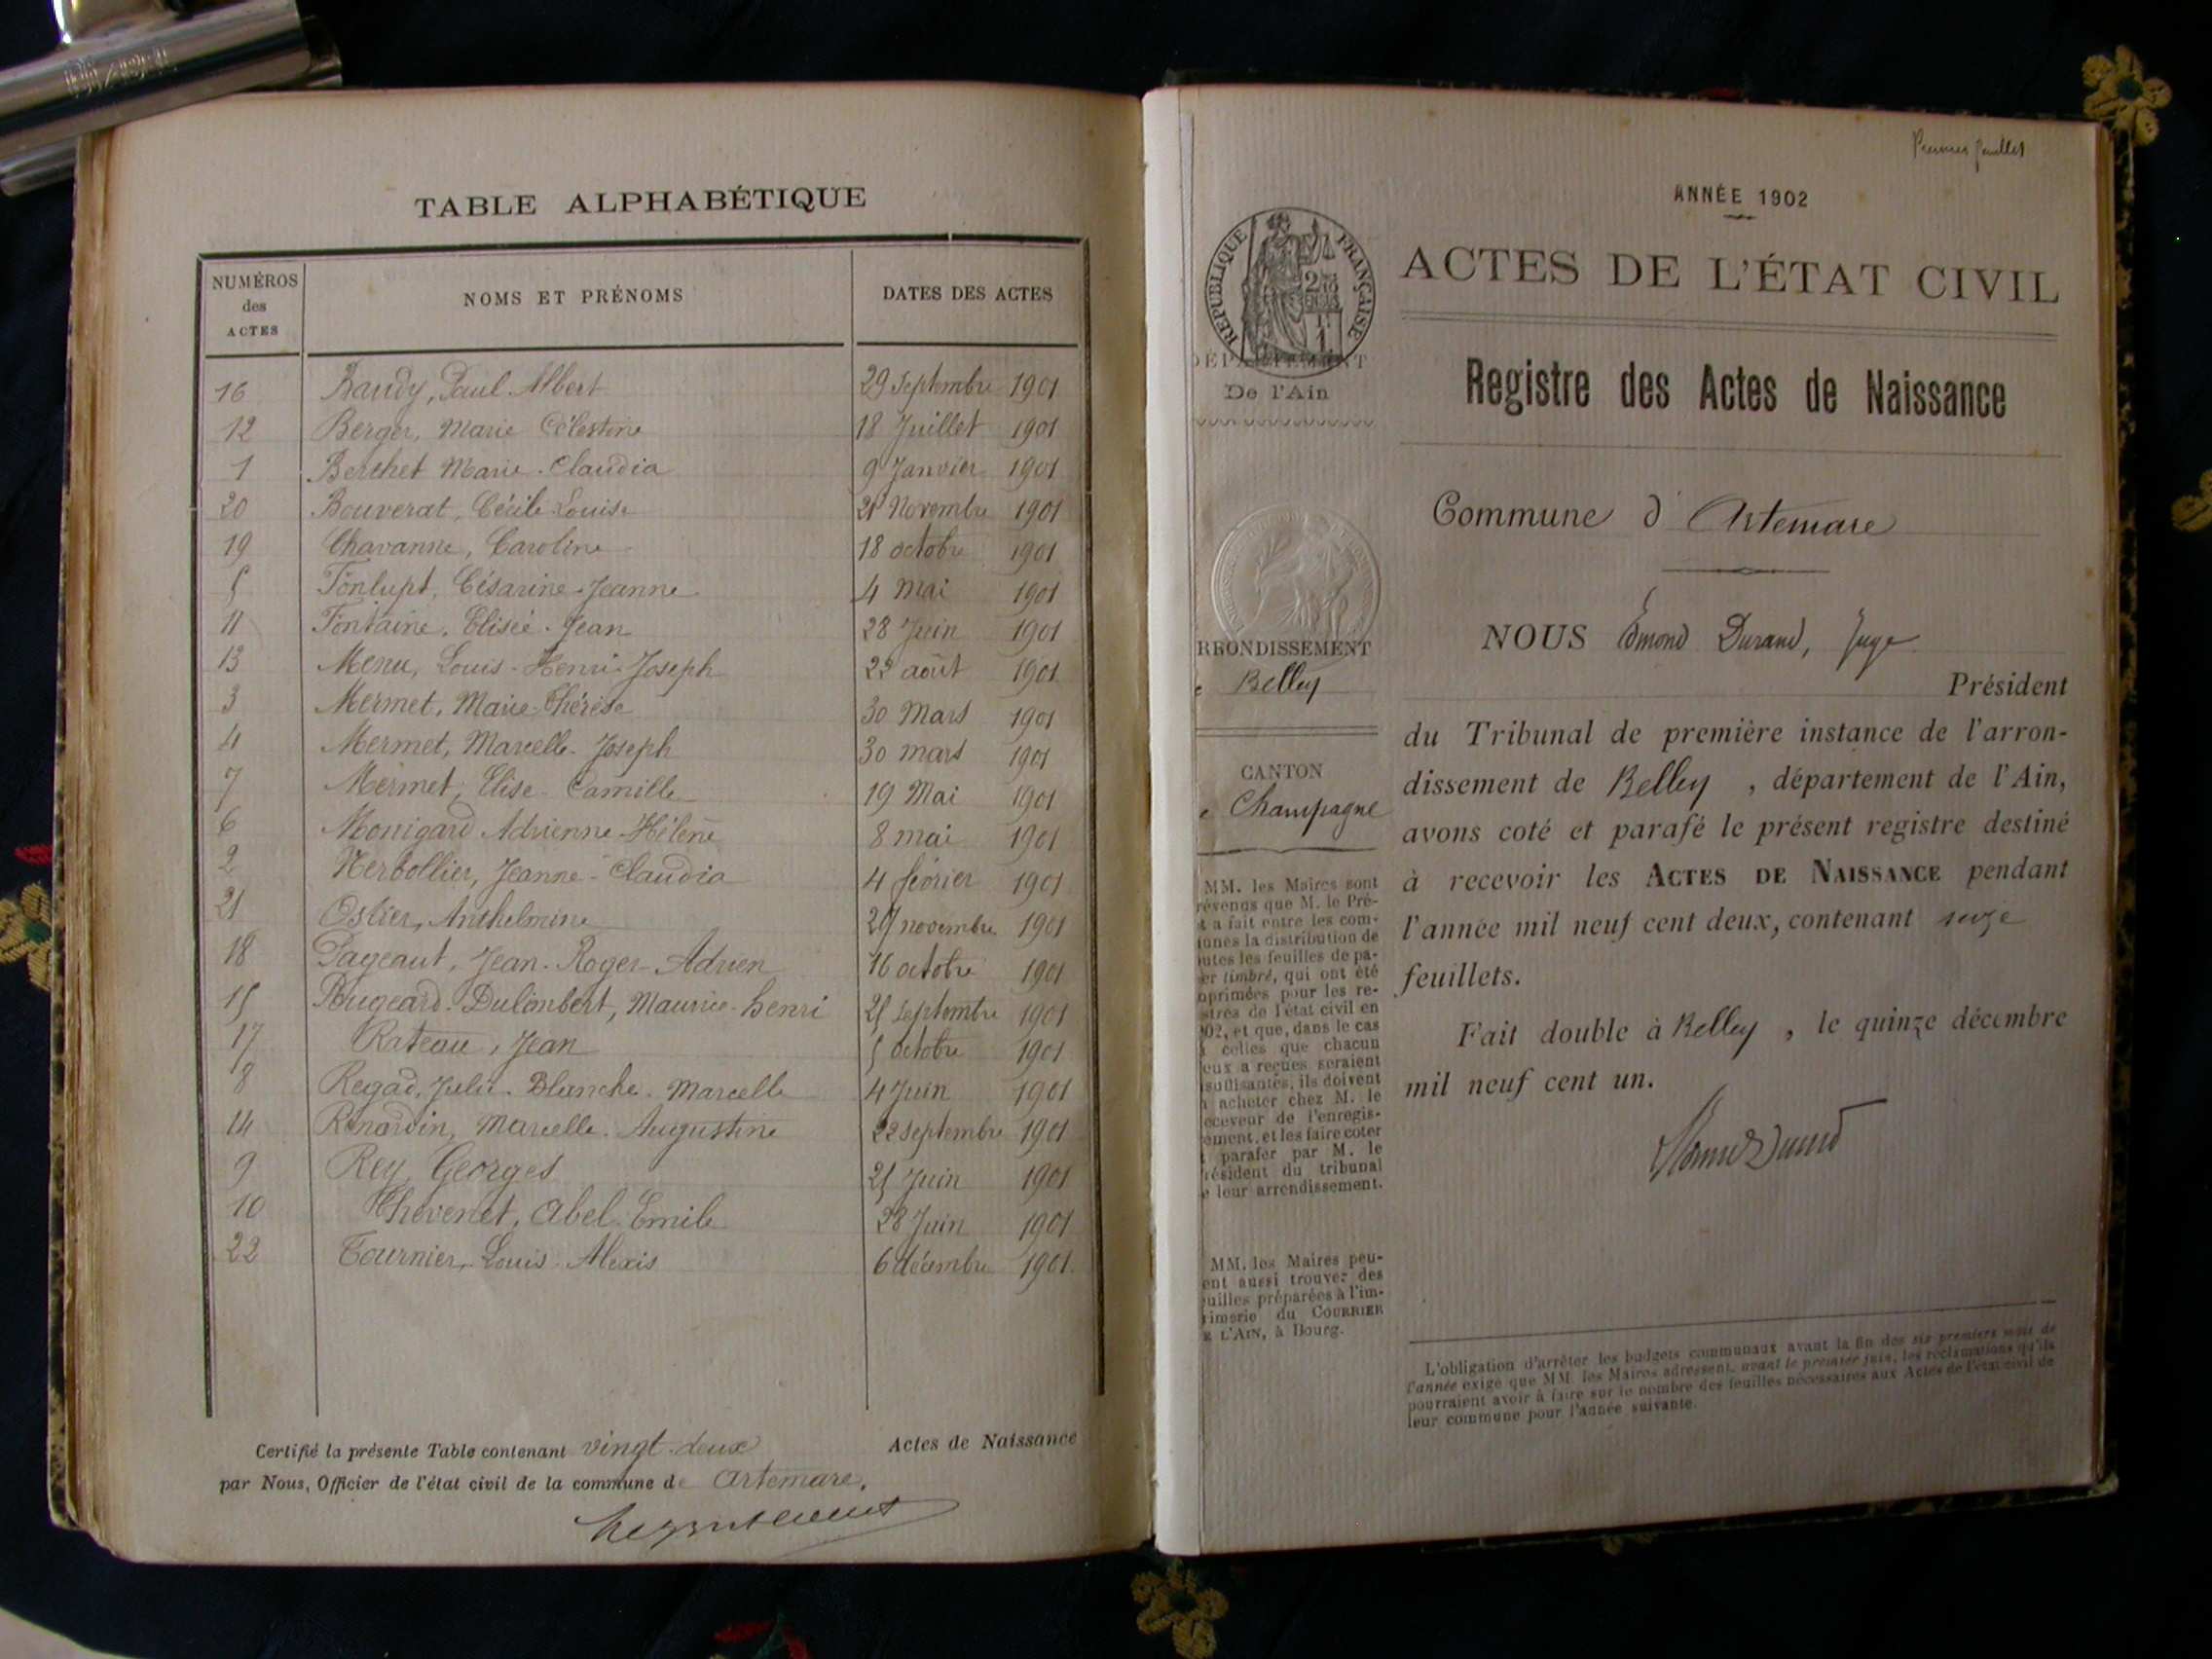 TABLE ALPHABÉTIQUE
NUMÉROS des ACTES
NOMS ET PRÉNOMS
DATES DES ACTES
16 Baudy, Paul Albert 29 Septembre 1901
12 Berger, Marie Célestine 18 Juillet 1901
1 Berthet Marie-Claudia 9 Janvier 1901
20 Bouverat, Cécile Louise 21 Novembre 1901
19 Chavanne, Caroline 18 octobre 1901
5 Fonlupt, Césarine-Jeanne 4 Mai 1901
11 Fontaine, Elisée-Jean 28 Juin 1901
13 Menu, Louis-Henri-Joseph 22 août 1901
3 Mermet, Marie-Thérèse 30 Mars 1901
4 Mermet, Marcelle-Joseph 30 mars 1901
7 Mermet, Elise-Camille 19 Mai 1901
6 Monigard Adrienne-Hélène 8 mai 1901
2 Nerbollier, Jeanne-Claudia 4 février 1901
21 Ostier, Anthelmine 29 novembre 1901
18 Pageaut, Jean-Roger-Adrien 16 octobre 1901
15 Pougeard-Dulimbert, Maurice-henri 25 Septembre 1901
17 Rateau, Jean 5 octobre 1901
8 Regad, Julie-Blanche-Marcelle 4 Juin 1901
14 Renardin, Marcelle-Augustine 22 septembre 1901
9 Rey, Georges 25 Juin 1901
10 Thévenet, Abel Emile 28 Juin 1901
22 Tournier, Louis-Alexis 6 décembre 1901
Certifié la présente Table contenant vingt-deux Actes de Naissance
par Nous, Officier de l'état civil de la commune de Artemare.
Premier feuillet
ANNÉE 1902
RÉPUBLIQUE FRANÇAISE
DÉPARTEMENT
De l'Ain
ACTES DE L'ÉTAT CIVIL
Registre des Actes de Naissance
Commune d'Artemare
RRONDISSEMENT
e Belley
CANTON
e Champagne
NOUS Edmond Durand, Juge
Président
du Tribunal de première instance de l'arron-
dissement de Belley, département de l'Ain,
avons coté et parafé le présent registre destiné
à recevoir les ACTES DE NAISSANCE pendant
l'année mil neuf cent deux, contenant seize
feuillets.
Fait double à Belley, le quinze décembre
mil neuf cent un.
MM. les Maires sont
révenus que M. le Pré-
t a fait entre les com-
unes la distribution de
utes les feuilles de pa-
er timbré, qui ont été
mprimées pour les re-
stres de l'état civil en
902, et que, dans le cas
celles que chacun
eux a reçues seraient
suffisantes, ils doivent
acheter chez M. le
eceveur de l'enregis-
ement, et les faire coter
t parafer par M. le
résident du tribunal
e leur arrondissement.
MM. les Maires peu-
ent aussi trouver des
uilles préparées à l'im-
rimerie du COURRIER
E L'AIN, à Bourg.
L'obligation d'arrêter les budgets communaux avant la fin des six premiers mois de
l'année exige que MM. les Maires adressent, avant le premier juin, les réclamations qu'ils
pourraient avoir à faire sur le nombre des feuilles nécessaires aux Actes de l'état civil de
leur commune pour l'année suivante.